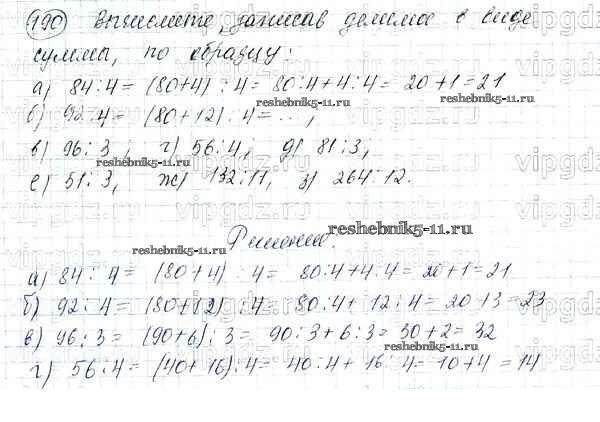 190 Вычислите, записав делимое в виде
суммы, по образцу:
а) 84:4 = (80+4):4 = 80:4+4:4 = 20+1=21
reshebnik5-11.ru
б) 92:4 = (80+12):4 = ...,
в) 96:3, г) 56:4; д) 81:3;
reshebnik5-11.ru
е) 51:3, ж) 132:11, з) 264:12.
vipgdz.ru
Решение.
reshebnik5-11.ru
reshebnik5-11.ru
а) 84:4 = (80+4):4 = 80:4+4:4 = 20+1=21
б) 92:4 = (80+12):4 = 80:4+12:4 = 20+3=23
в) 96:3 = (90+6):3 = 90:3+6:3 = 30+2=32
reshebnik5-11.ru
г) 56:4 = (40+16):4 = 40:4+16:4 = 10+4=14